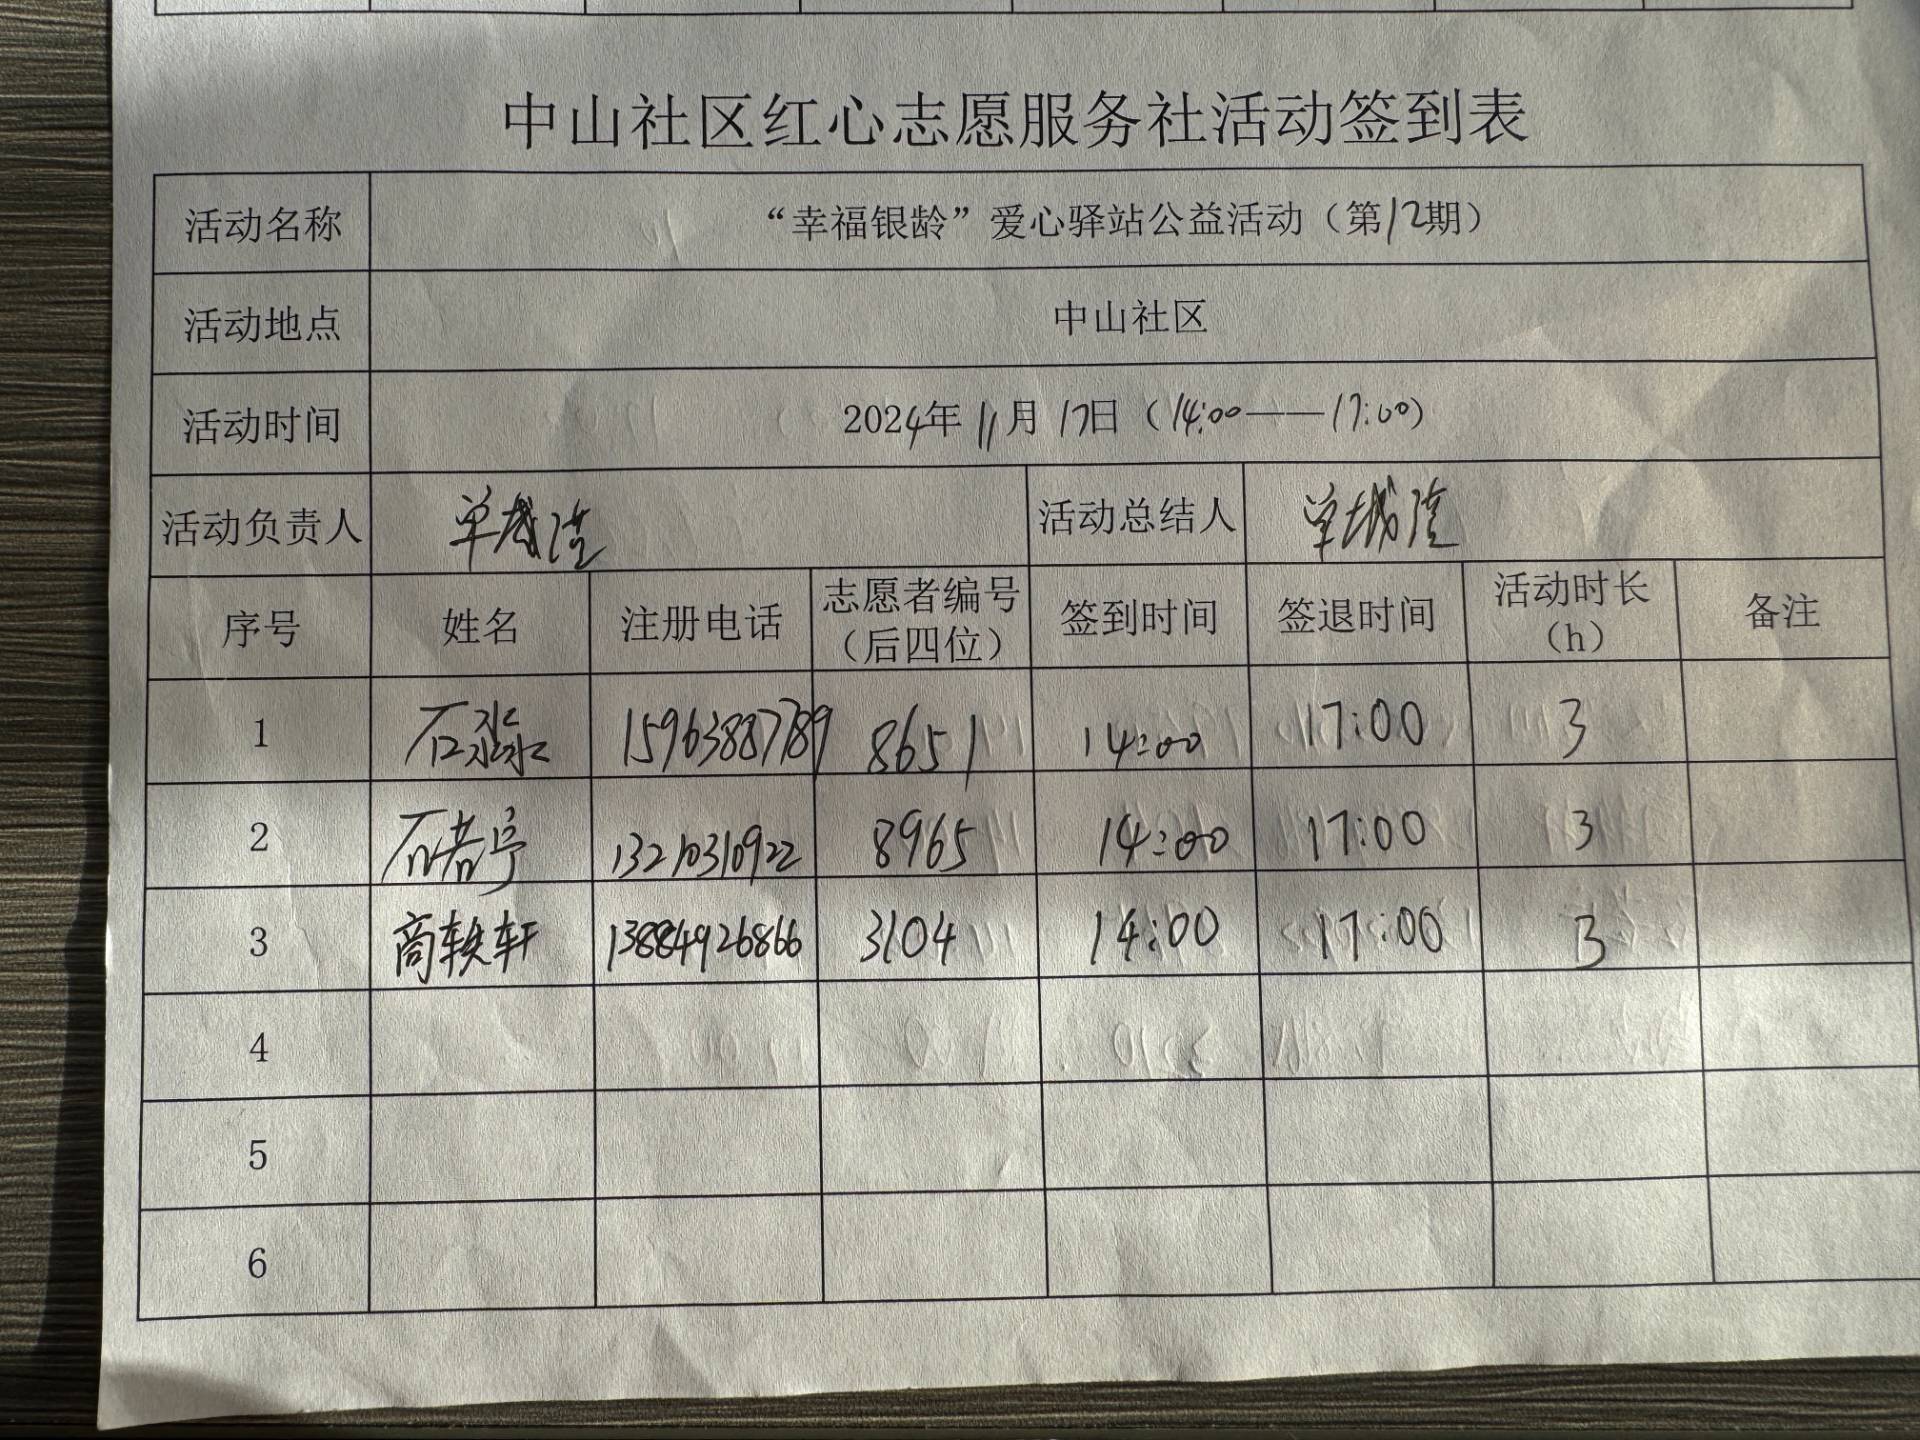 中山社区红心志愿服务社活动签到表
活动名称 “幸福银龄”爱心驿站公益活动（第12期）
活动地点 中山社区
活动时间 2024年11月17日（14:00——17:00）
活动负责人 单 活动总结人 单城
序号 姓名 注册电话 志愿者编号（后四位） 签到时间 签退时间 活动时长（h） 备注
1 石淼 15963887789 8651 14:00 17:00 3
2 石若宁 13210310922 8965 14:00 17:00 3
3 商轶轩 13884926866 3104 14:00 17:00 3
4
5
6